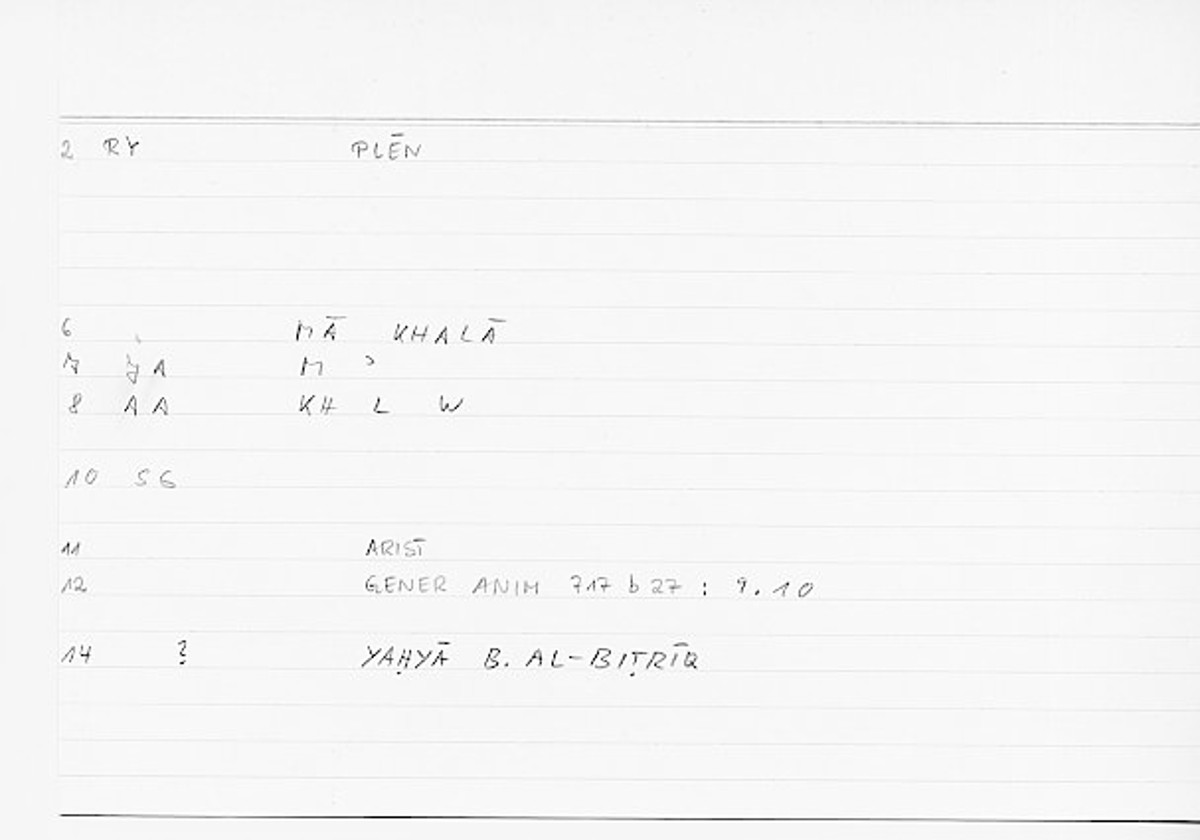 2 RY PLĒN
6 MĀ KHALĀ
7 A M ʾ
8 AA KH L W
10 SG
11 ARIST
12 GENER ANIM 717 b 27 : 9.10
14 ? YAḤYĀ B. AL-BIṬRĪQ